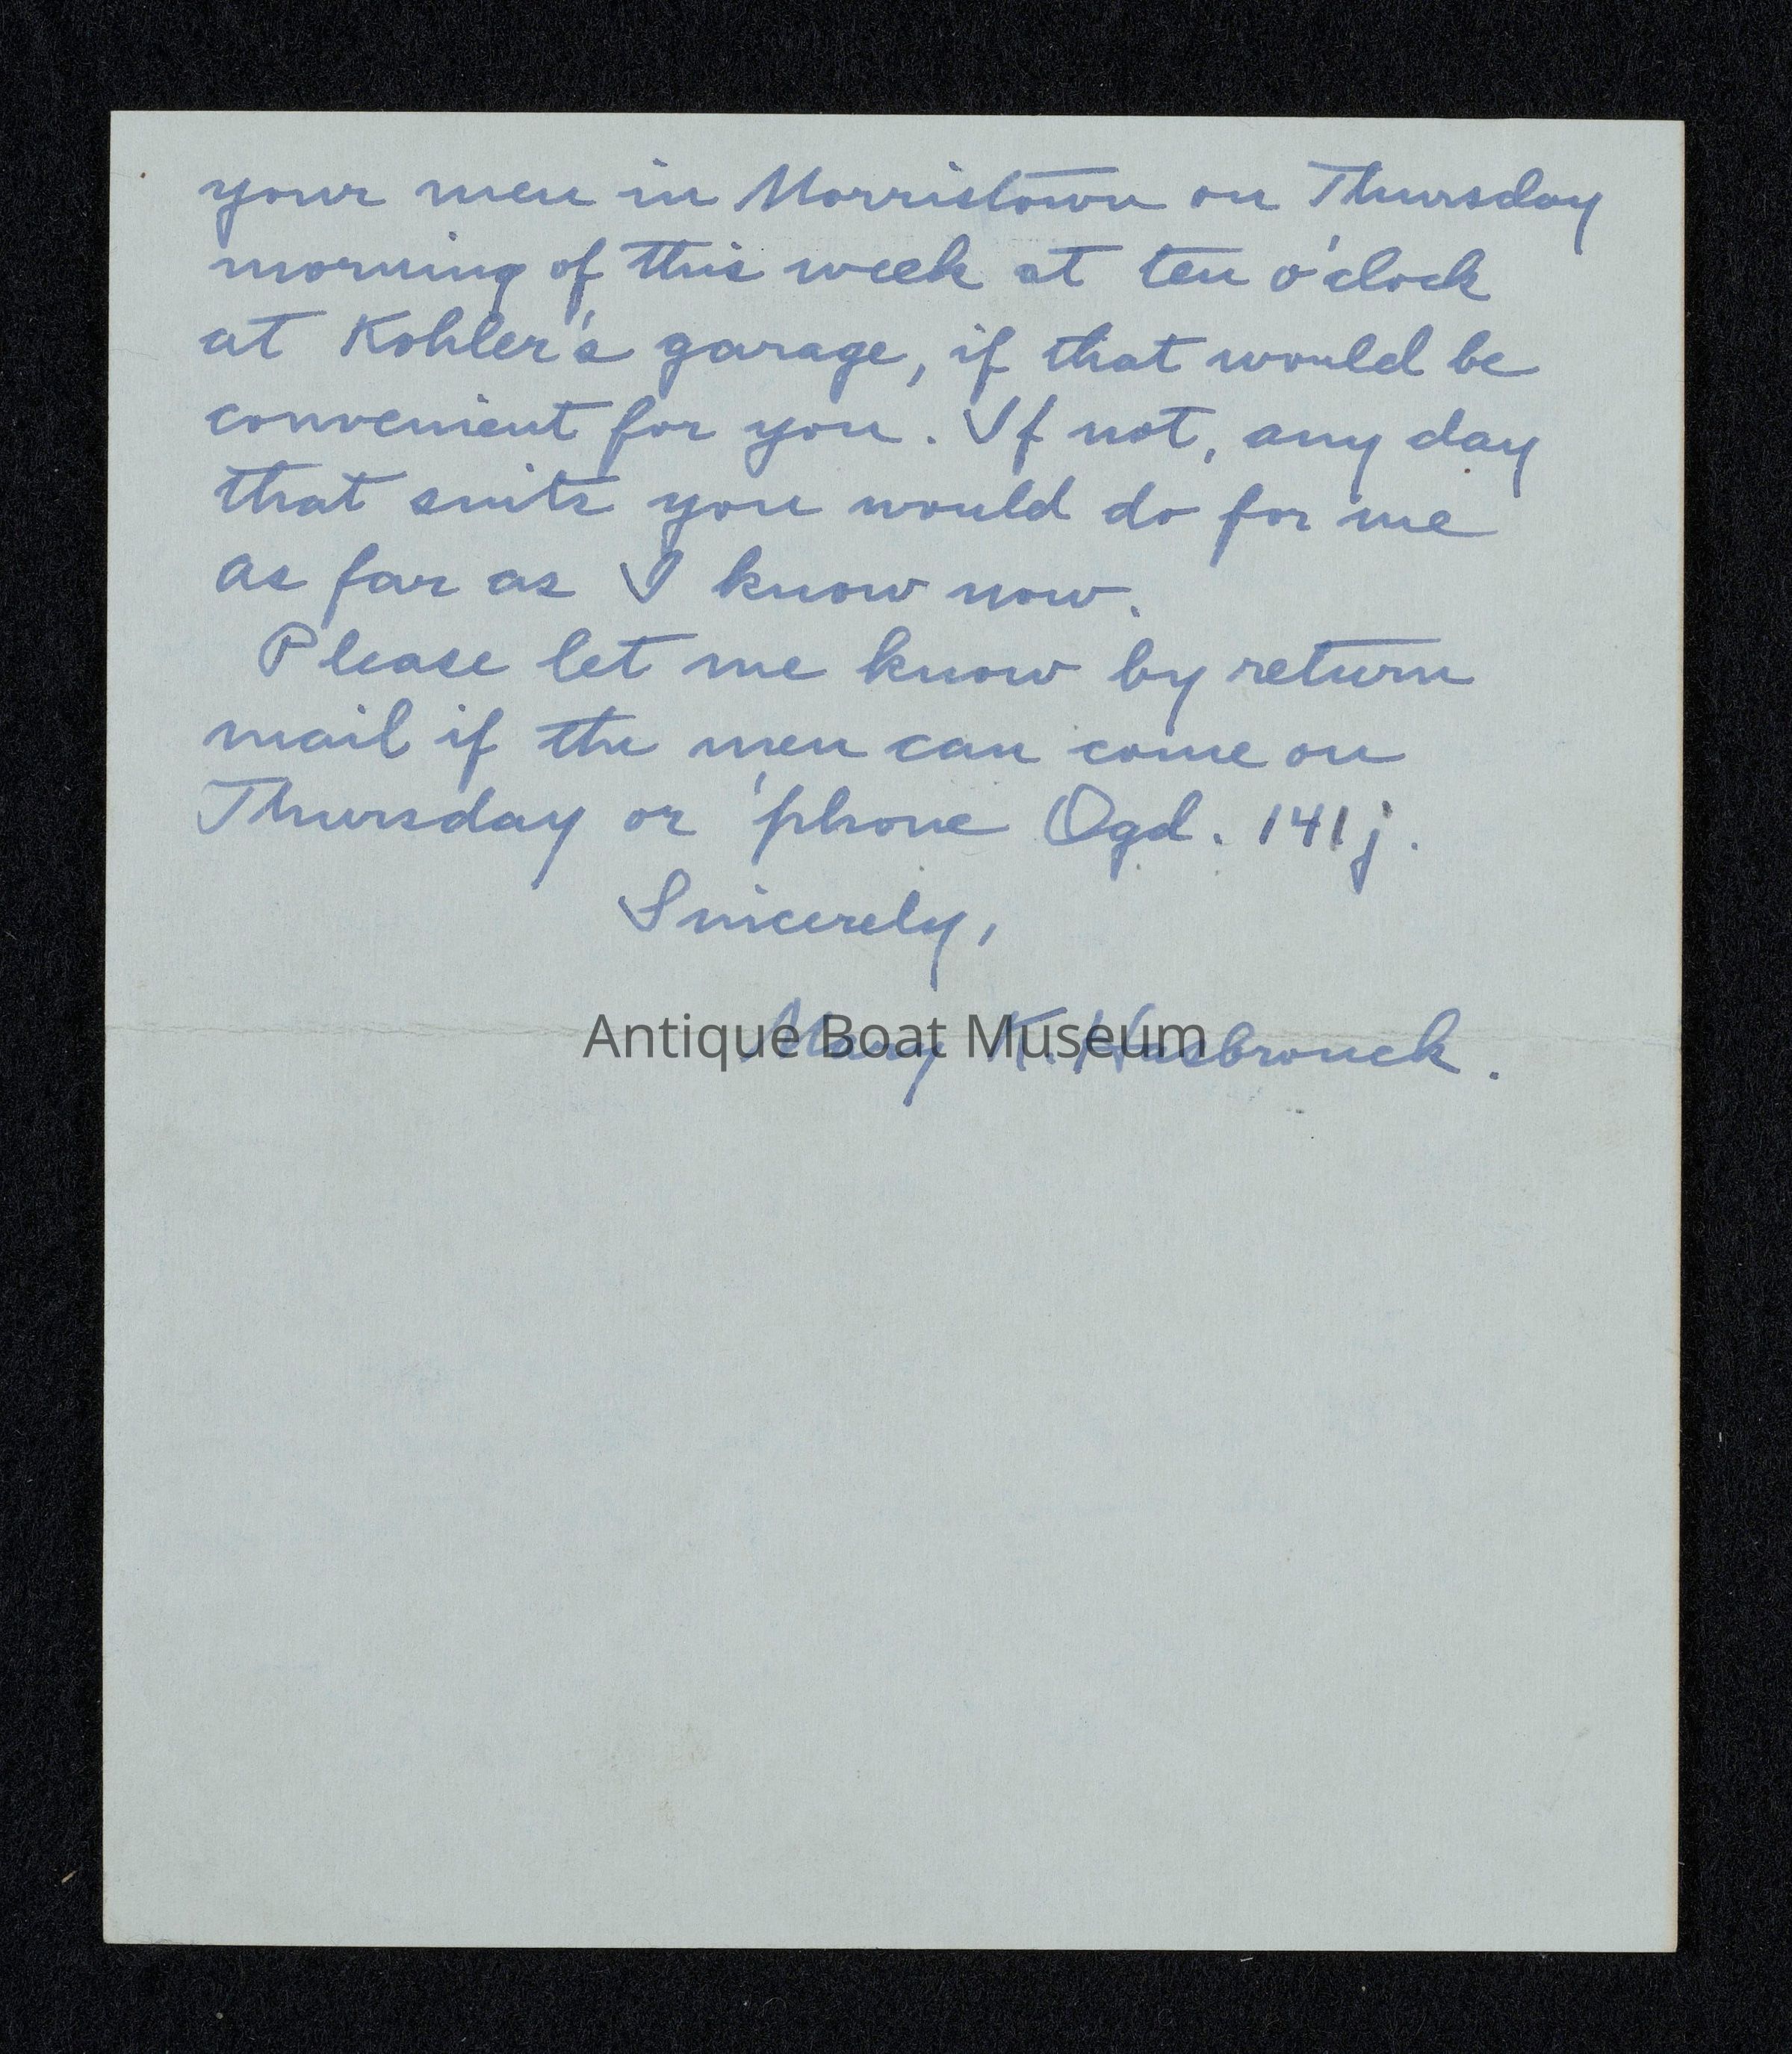 your men in Morristown on Thursday
morning of this week at ten o'clock
at Kohler's garage, if that would be
convenient for you. If not, any day
that suits you would do for me
as far as I know now.
Please let me know by return
mail if the men can come on
Thursday or 'phone Ogd. 141j.
Sincerely,
Mary K. Hasbrouck.
Antique Boat Museum